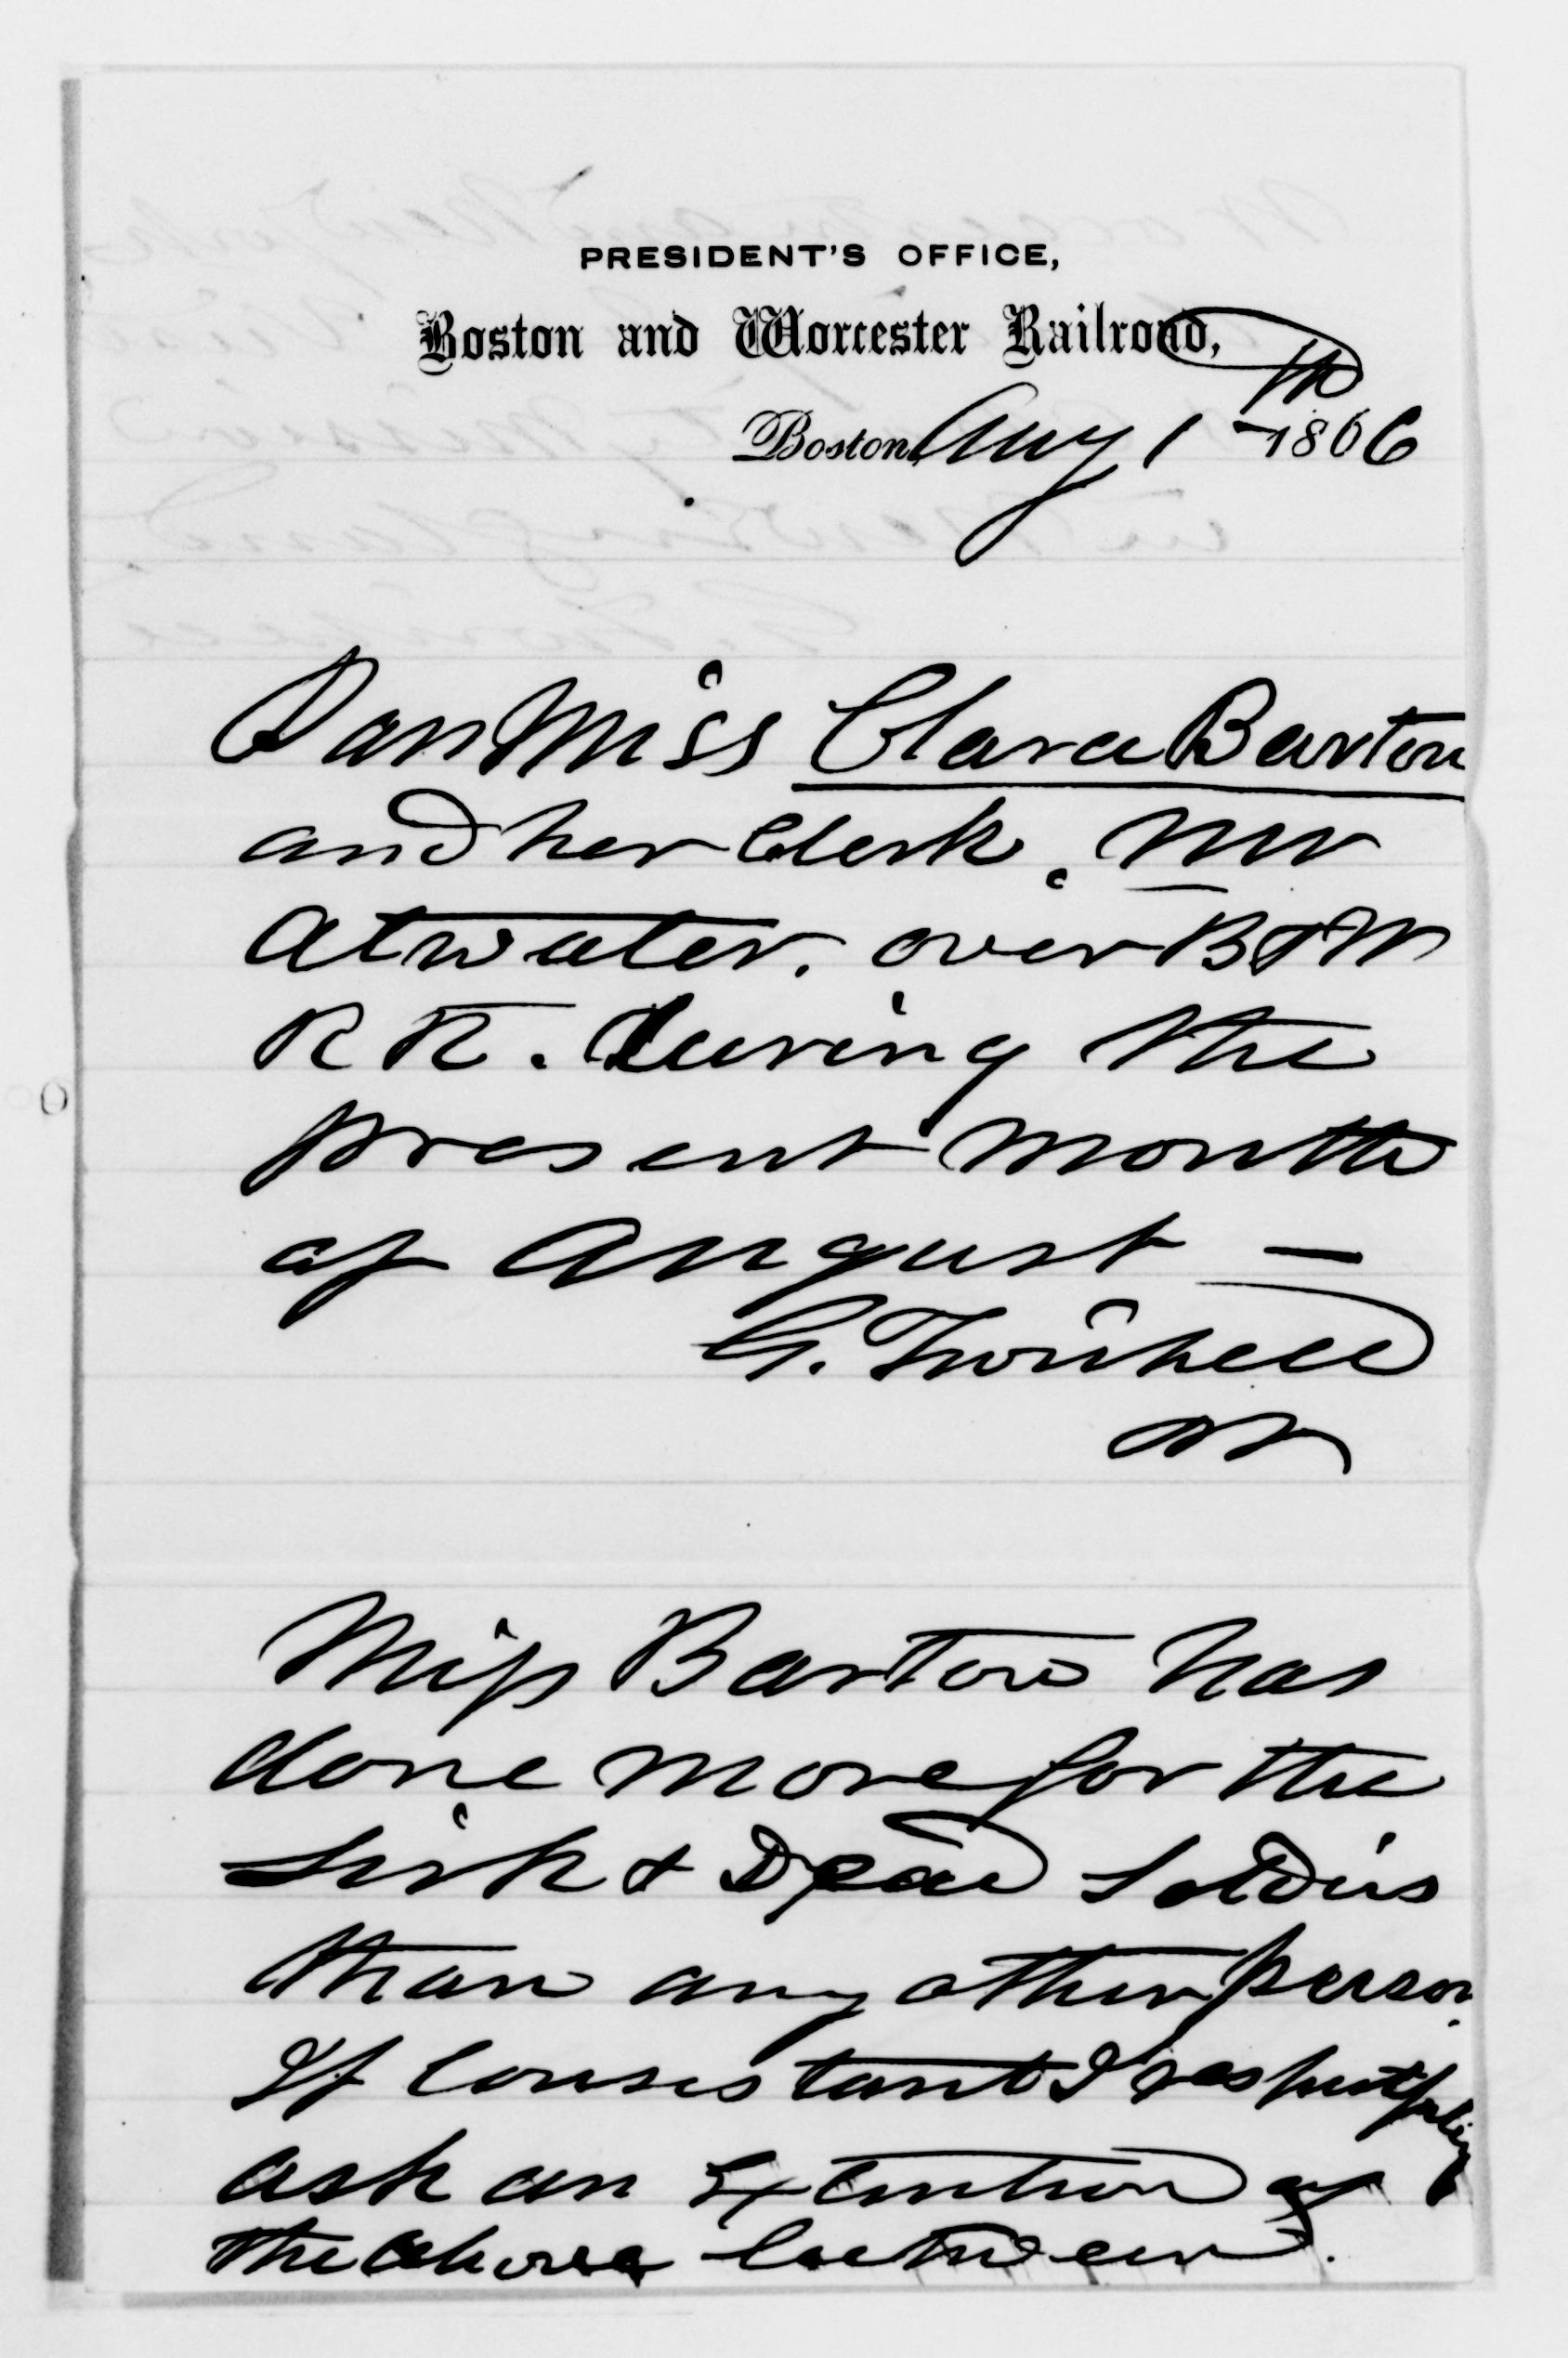 PRESIDENT'S OFFICE,
Boston and Worcester Railroad,
Boston, Aug 1st 1866
Pass Miss Clara Barton
and her Clerk. Mr
Atwater. over B & W
R R. during the
present month
of August —
G. Twichell
Miss Barton has
done more for the
sick & Dead Soldiers
than any other person.
If consistant I respectfully
ask an Extention of
the above between.